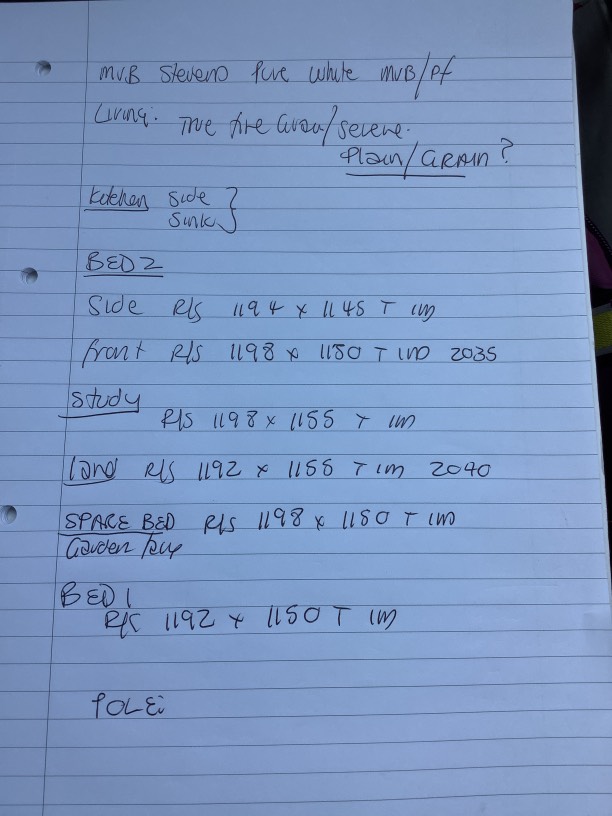 MVB Stevens Pure White MVB/PF
Living: True fire /serene.
Plain/GRAIN?
Kitchen Side
Sink }
BED 2
Side R/S 1194 x 1145 T IM
Front R/S 1198 x 1150 T IM 2035
Study
R/S 1198 x 1155 T IM
Land R/S 1192 x 1155 T IM 2040
SPARE BED R/S 1198 x 1150 T IM
Garden
BED 1
R/S 1192 x 1150 T IM